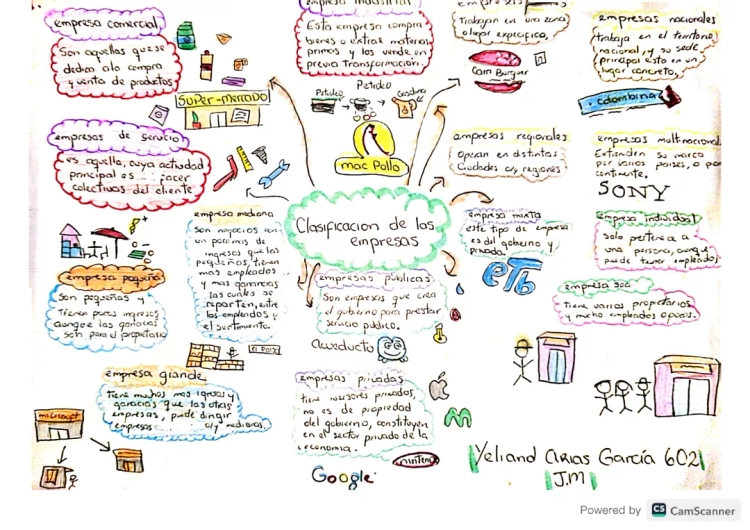 empresa comercial
Son aquellas que se
dedica a la compra
y venta de productos
SUPER-MERCADO
empresa industrial
Esta empresa compra
bienes o extrae materias
primas y las vende en
previa transformación.
Petroleo
mac Pollo
Trabajan en una zona
o lugar expecifico,
Cam Burguer
empresas nacionales
trabaja en el territorio
nacional, y su sede
principal esta en un
lugar concreto,
colombina
empresas de servicio
es aquella, cuya actividad
principal es
colectivos del cliente
empresas regionales
Operan en distintas
Ciudades o/y regiones
empresas multinacional
Extienden su marca
por varios paises, o por
continente.
SONY
Clasificacion de las
empresas
empresa mediana
Son negocios con
un poco mas de
ingresos que las
pequeñas, tienen
mas empleados
y mas ganancias
las cuales se
reparten, entre
los empleados y
el surtimiento.
empresa mixta
este tipo de empresa
es del gobierno y
Privada.
eTb
empresa individual
solo pertenece a
una persona, aunque
puede tener empleados
empresa pequeña
son pequeñas y
Tienen pocos ingresos
aunque las ganacias
son para el propietario
empresas publicas
Son empresas que crea
el gobierno para prestar
servicio publico.
acueducto
empresa soc
Tiene varios propietarios
y mucho empleados
empresa grande
tiene muchos mas
ganacias que las otras
empresas, puede dirigir
empresas o/y medianas.
microsoft
empresas privadas
no es de propiedad
del gobierno, constituyen
en el sector privado de la
economia.
Google
nintendo
Yeliand Arias García 602
J.M
Powered by CS CamScanner